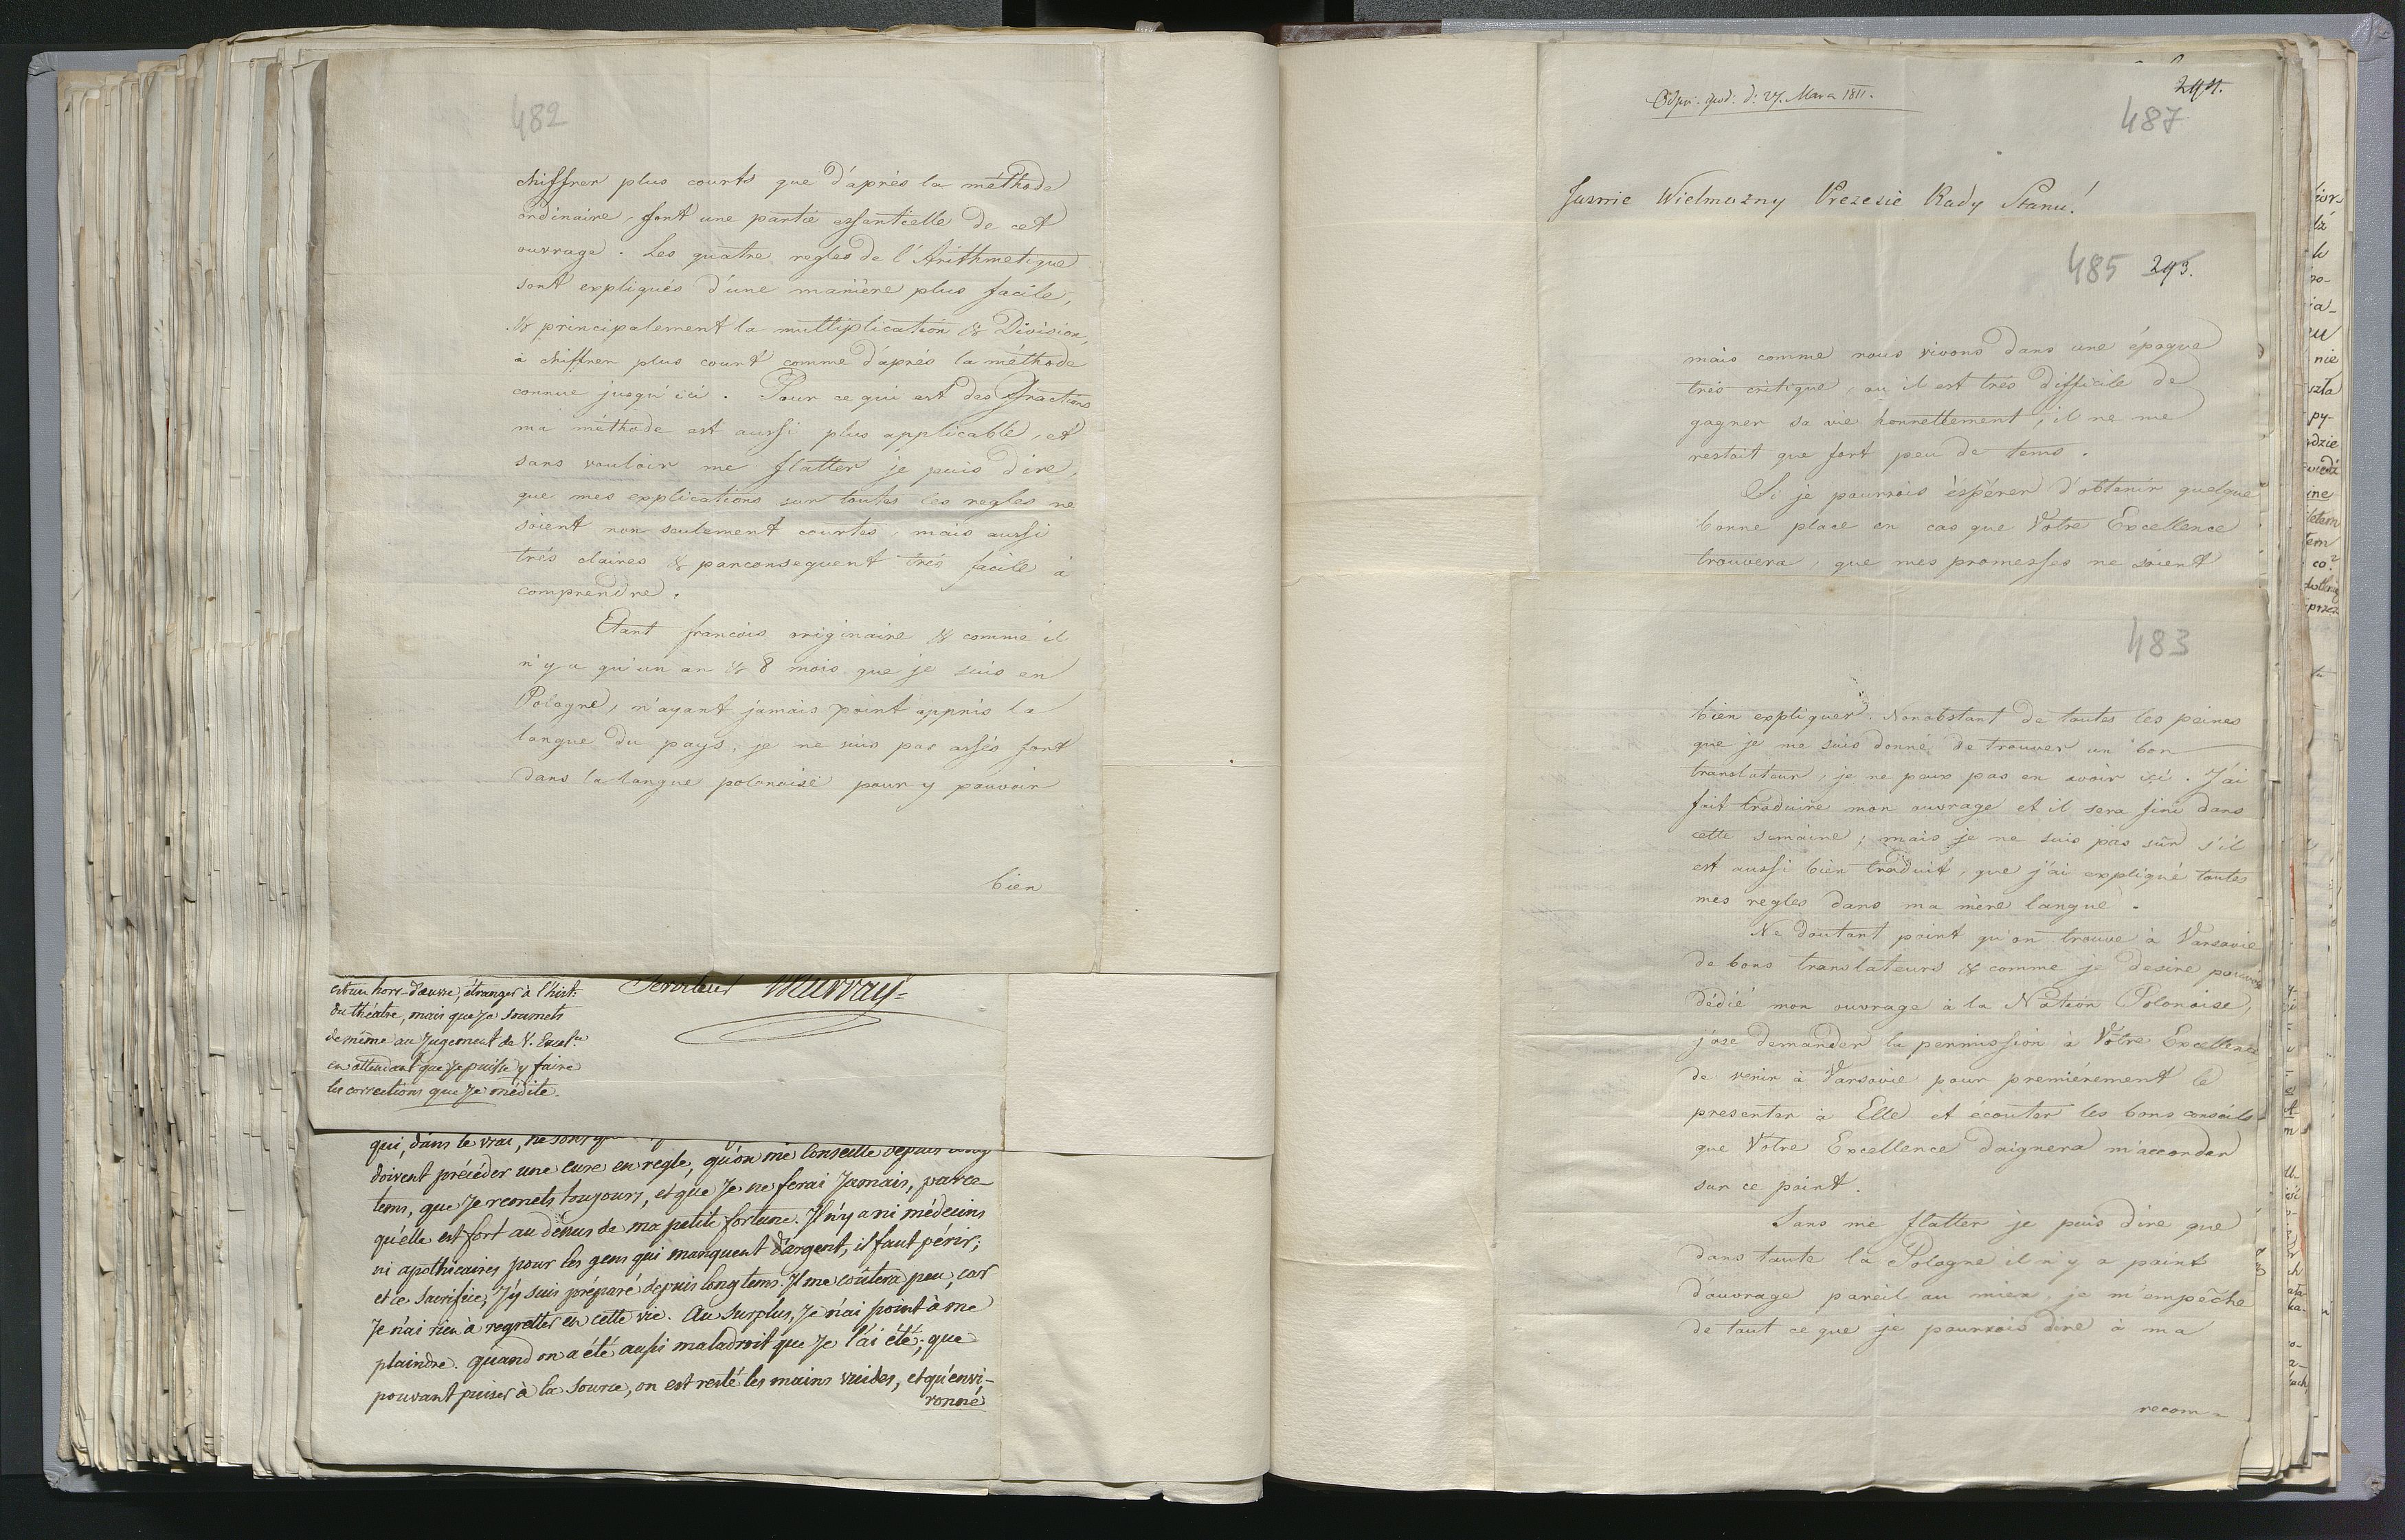 482
chiffrer plus courts que d'après la méthode
ordinaire, font une partie essentielle de cet
ouvrage. Les quatre regles de l'Arithmetique
sont expliqués d'une manière plus facile,
& principalement la multiplication & Division,
à chiffrer plus court comme d'après la méthode
connue jusqu'ici. Pour ce qui est des Fractions
ma méthode est aussi plus applicable, et
sans vouloir me flatter je puis dire,
que mes explications sur toutes les regles ne
soient non seulement courtes, mais aussi
très claires & parconsequent très facile à
comprendre.
Etant francois originaire & comme il
n'y a qu'un an & 8 mois que je suis en
Pologne, n'ayant jamais point appris la
langue du pays, je ne suis pas assés fort
dans la langue polonaise pour y pouvoir
bien
est un hors-d'œuvre, étranger à l'hist:
du théâtre, mais que je soumets
de même au Jugement de V. Excel.ce
en attendant que je puisse y faire
les corrections que Je médite.
Serviteur Murray
qui, dans le vrai, ne sont
doivent précéder une cure en regle, qu'on me conseille depuis long
tems, que Je remets toujours, et que Je ne ferai Jamais, parce
qu'elle est fort au dessus de ma petite fortune. Il n'y a ni médecins
ni apothicaires pour les gens qui manquent d'argent, il faut périr;
et ce sacrifice, J'y suis préparé depuis long tems. Il me coûtera peu, car
Je n'ai rien à regretter en cette vie. Au surplus, Je n'ai point à me
plaindre. Quand on a été aussi maladroit que Je l'ai été; que
pouvant puiser à la source, on est resté les mains vuides, et qu'envi-
ronné
d: 27. Marca 1811.
294.
487
Jasnie Wielmożny Prezesie Rady Stanu!
485 293.
mais comme nous vivons dans une époque
très critique, ou il est très difficile de
gagner sa vie honnettement, il ne me
restoit que fort peu de tems.
Si je pourrois éspérer d'obtenir quelque
bonne place en cas que Votre Excellence
trouvera, que mes promesses ne soient
483
bien expliquer. Nonobstant de toutes les peines
que je me suis donné de trouver un bon
translateur, je ne peux pas en avoir ici. J'ai
fait traduire mon ouvrage et il sera fini dans
cette semaine; mais je ne suis pas sûr s'il
est aussi bien traduit, que j'ai expliqué toutes
mes regles dans ma mère langue.
Ne doutant point qu'on trouve à Varsovie
de bons translateurs & comme je desire pouvoir
dédié mon ouvrage à la Nation Polonoise,
j'ose demander la permission à Votre Excellence
de venir à Varsovie pour premièrement le
presenter à Elle et écouter les bons conseils
que Votre Excellence daignera m'accorder
sur ce point.
Sans me flatter je puis dire que
dans toute la Pologne il n'y a point
d'ouvrage pareil au mien, je m'empêche
de tout ce que je pourrois dire à ma
recom-